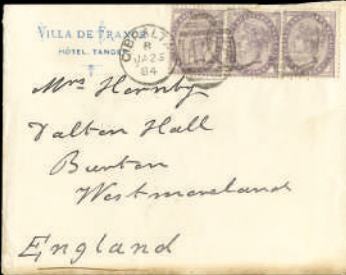 VILLA DE FRANCE
HÔTEL, TANGER
GIBRALTAR
B
JA 25
84
Mrs Hornby
Dalton Hall
Burton
Westmoreland
England